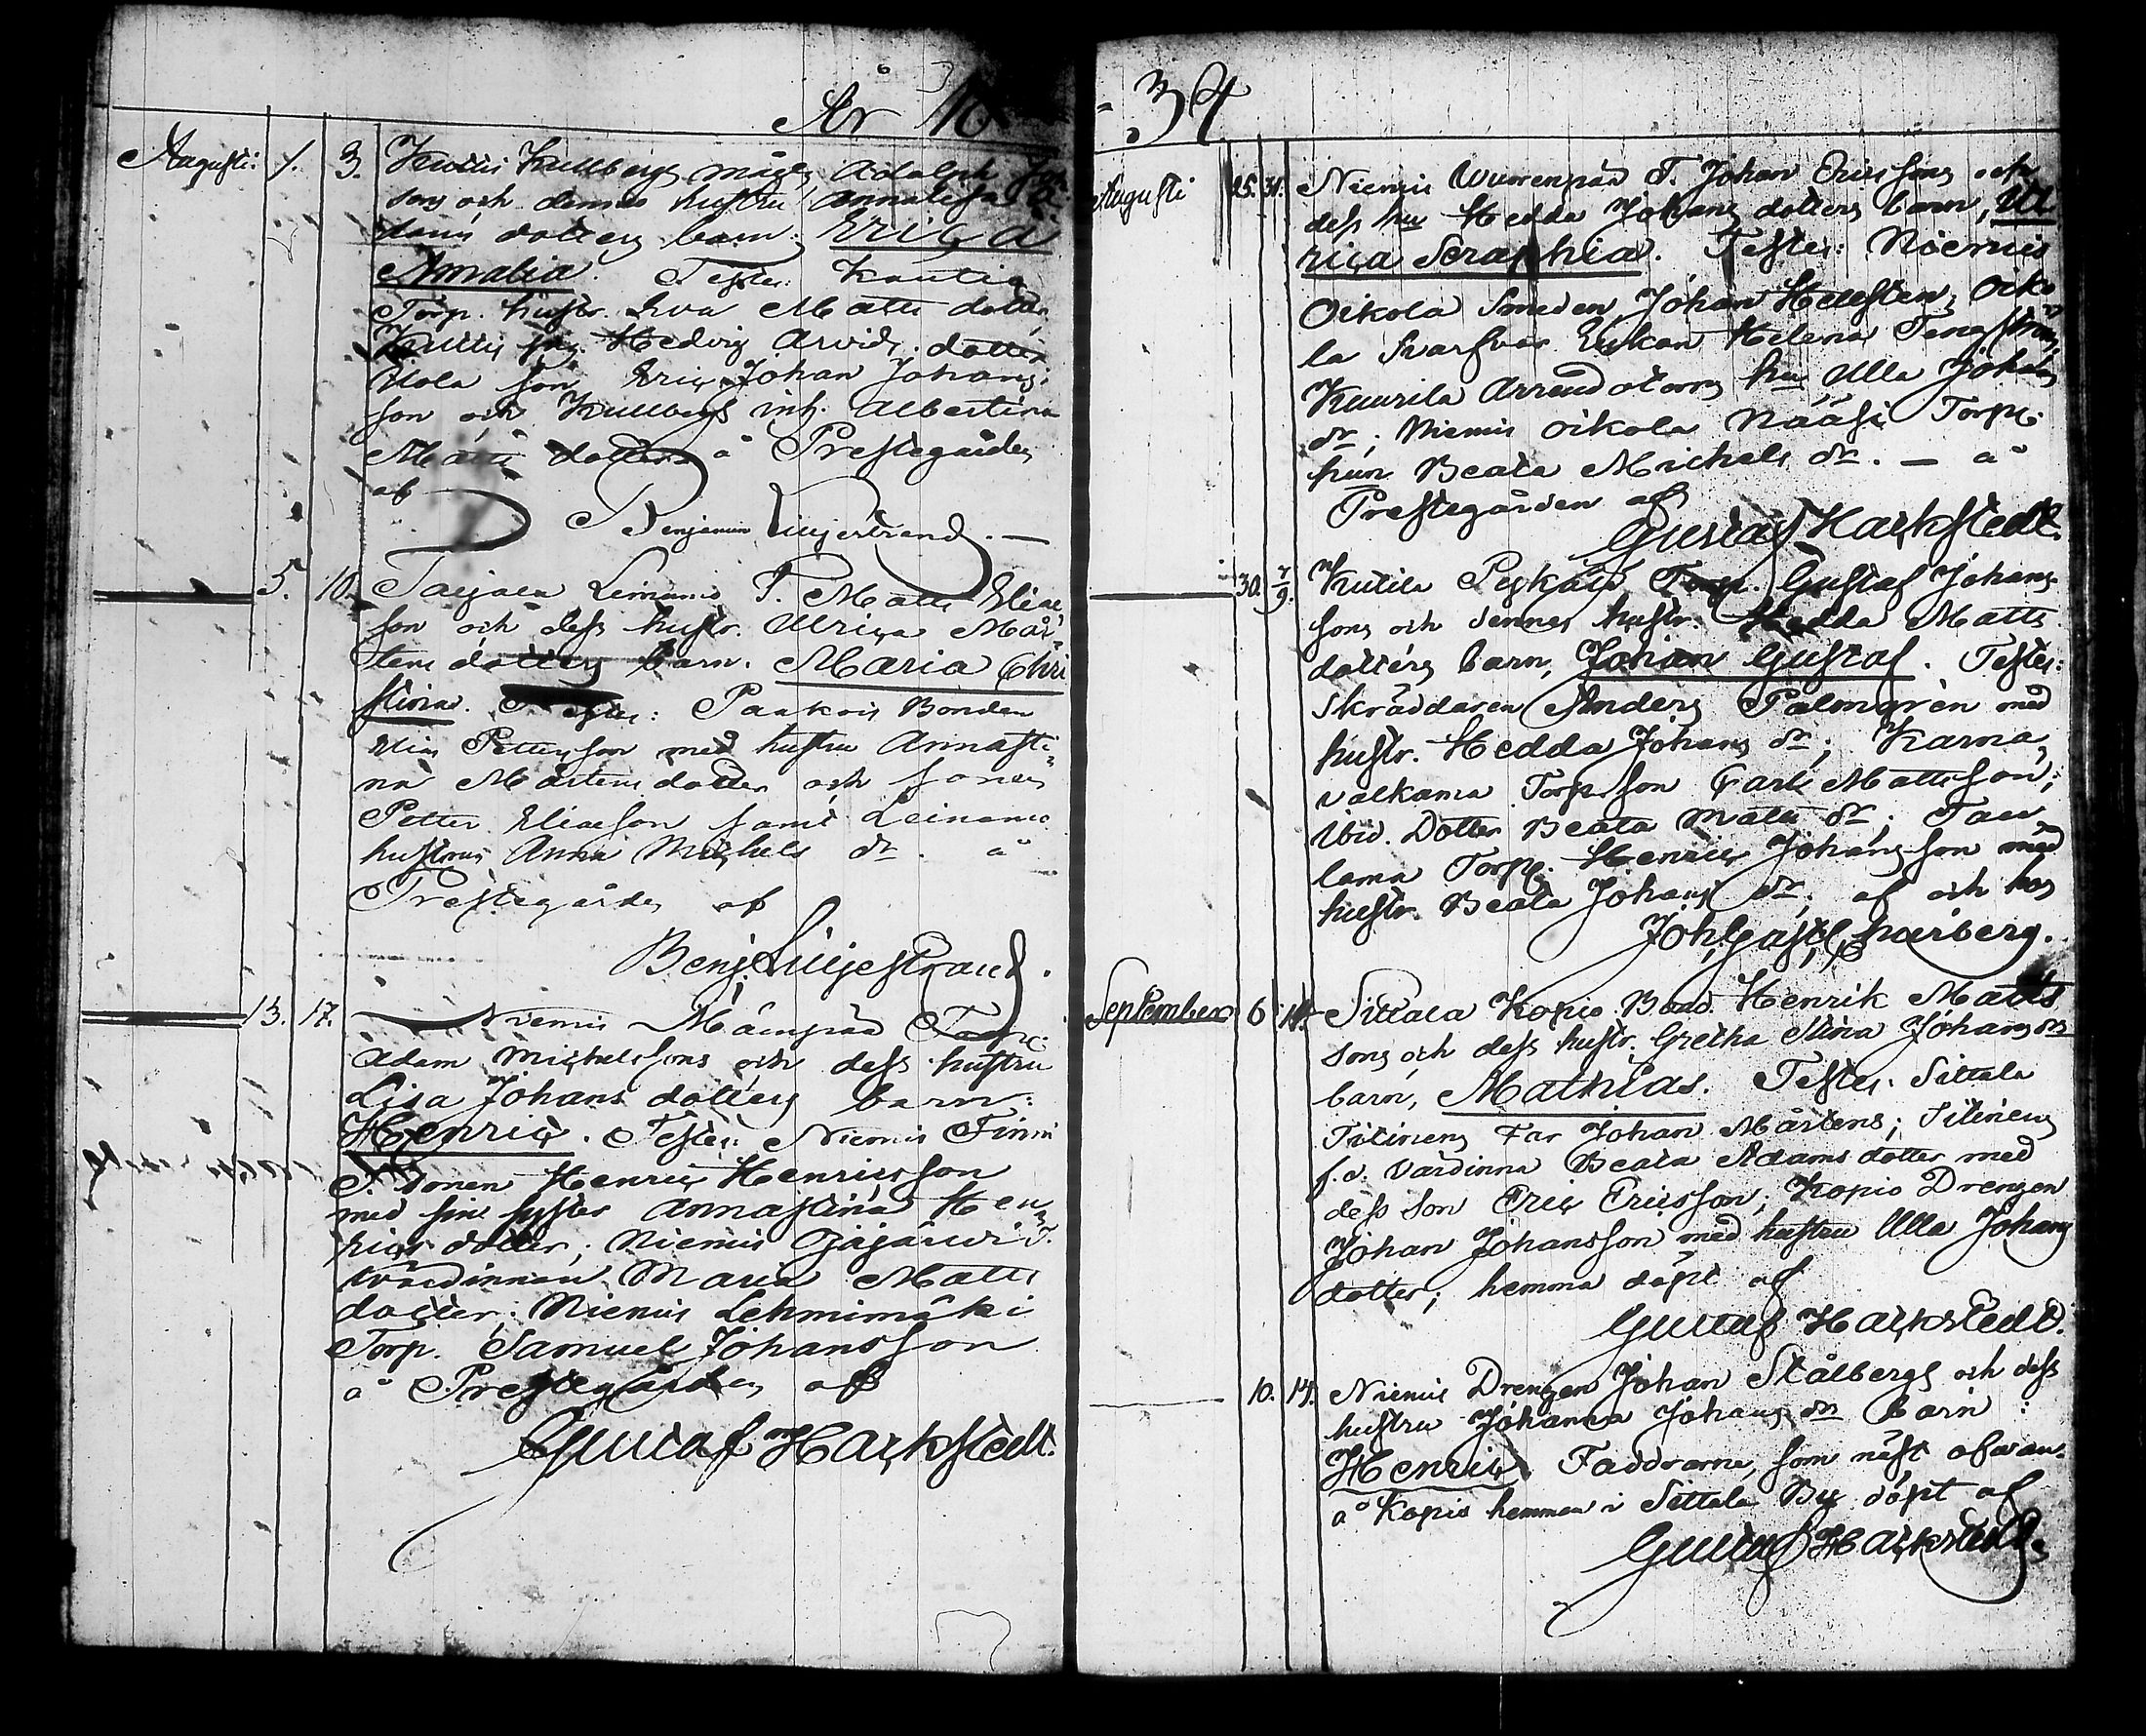 År 18
Augusti. 1. 3. Kullbergs måg Adolph
sons och dennes hustru Annalisa
dotters barn: Erica
Amalia. Test: Kautia
Torp. hustr. Eva Matts dotter,
Hedvig Arvids dotter
Uola son Eric Johan Johans
son och Kullbergs inh. Albertina
Matts dotter å Prestegården
af
Benjamin Liljestrand.
5. 10. T. Matts Elias
son och dess hustr. Ulrica Mår
tens dotters barn. Maria Chri
stina. Testes: Paakois Bonden
Elias Petterson med hustru Annasti
na Mårtens dotter och sonen
Petter Eliasson samt Leinamo
hustrun Anna Michels dr. å
Prestegården af
Benj. Liljestrand.
13. 17. Niemis Mäenpää Torp.
Adam Michelssons och dess hustru
Lisa Johans dotters barn:
Henric. Testes: Niemis Finni
T. sonen Henric Henricsson
med sin syster Annastina Hen
rics dotter; Niemis Ojajärvi T.
värdinnan Maria Matts
dotter; Niemis Lehmimäki
Torp. Samuel Johansson
å Prestegården af
Gustaf Hackstedt.
34
Augusti 25. 31. Niemis Wuorenpää T. Johan Ericssons och
dess hu Hedda Johans dotters barn, Ul
rica Seraphia. Testes: Niemis
Oikola Smeden Johan Hellsten, Oiko
la Svarfvar Enkan Helena Tengström,
Kuurila Arrendatorns hu Ulla Johans
dr; Niemis Oikola Nääsi Torp.
hun Beata Michels dr. — å
Prestegården af
Gustaf Hackstedt.
30. 7/9. Kutila Peskala Torp. Gustaf Johans
sons och dennes hustr. Hedda Matts
dotters barn, Johan Gustaf. Testes:
Skräddaren Anders Palmgren med
hustr. Hedda Johans dr; Karna
valkama Torp. son Carl Mattsson;
ibid. Dotter Beata Matts dr; Tau
lama Torp. Henric Johansson med
hustr. Beata Johans dr; af och hos
Joh. Gust.
September 6 14. Sittala Kopio Bond. Henrik Matts
sons och dess hustr. Gretha Stina Johans dr
barn, Mathias. Testes: Sittala
Titinens Far Johan Mårtens; Titinens
f.d. Värdinna Beata Adams dotter med
dess son Eric Ericsson; Kopio Drengen
Johan Johansson med hustru Ulla Johans
dotter; hemma döpt af
Gustaf Hackstedt.
10. 14. Niemis Drengen Johan Stålbergs och dess
hustru Johanna Johans dr barn:
Henric. Faddrarne, som näst ofvan.
å Kopio hemman i Sittala By döpt af
Gustaf Hackstedt.